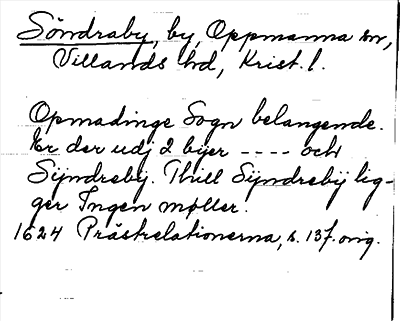 Söndraby, by, Oppmanna sn,
Villands hd, Krist. l.
Opmadinge Sogn belangende.
Er der udj 2 byer ---- och
Sÿndrebÿ. Thill Sÿndrebÿ lig-
ger Ingen møller.
1624 Prästrelationerna, s. 137. orig.